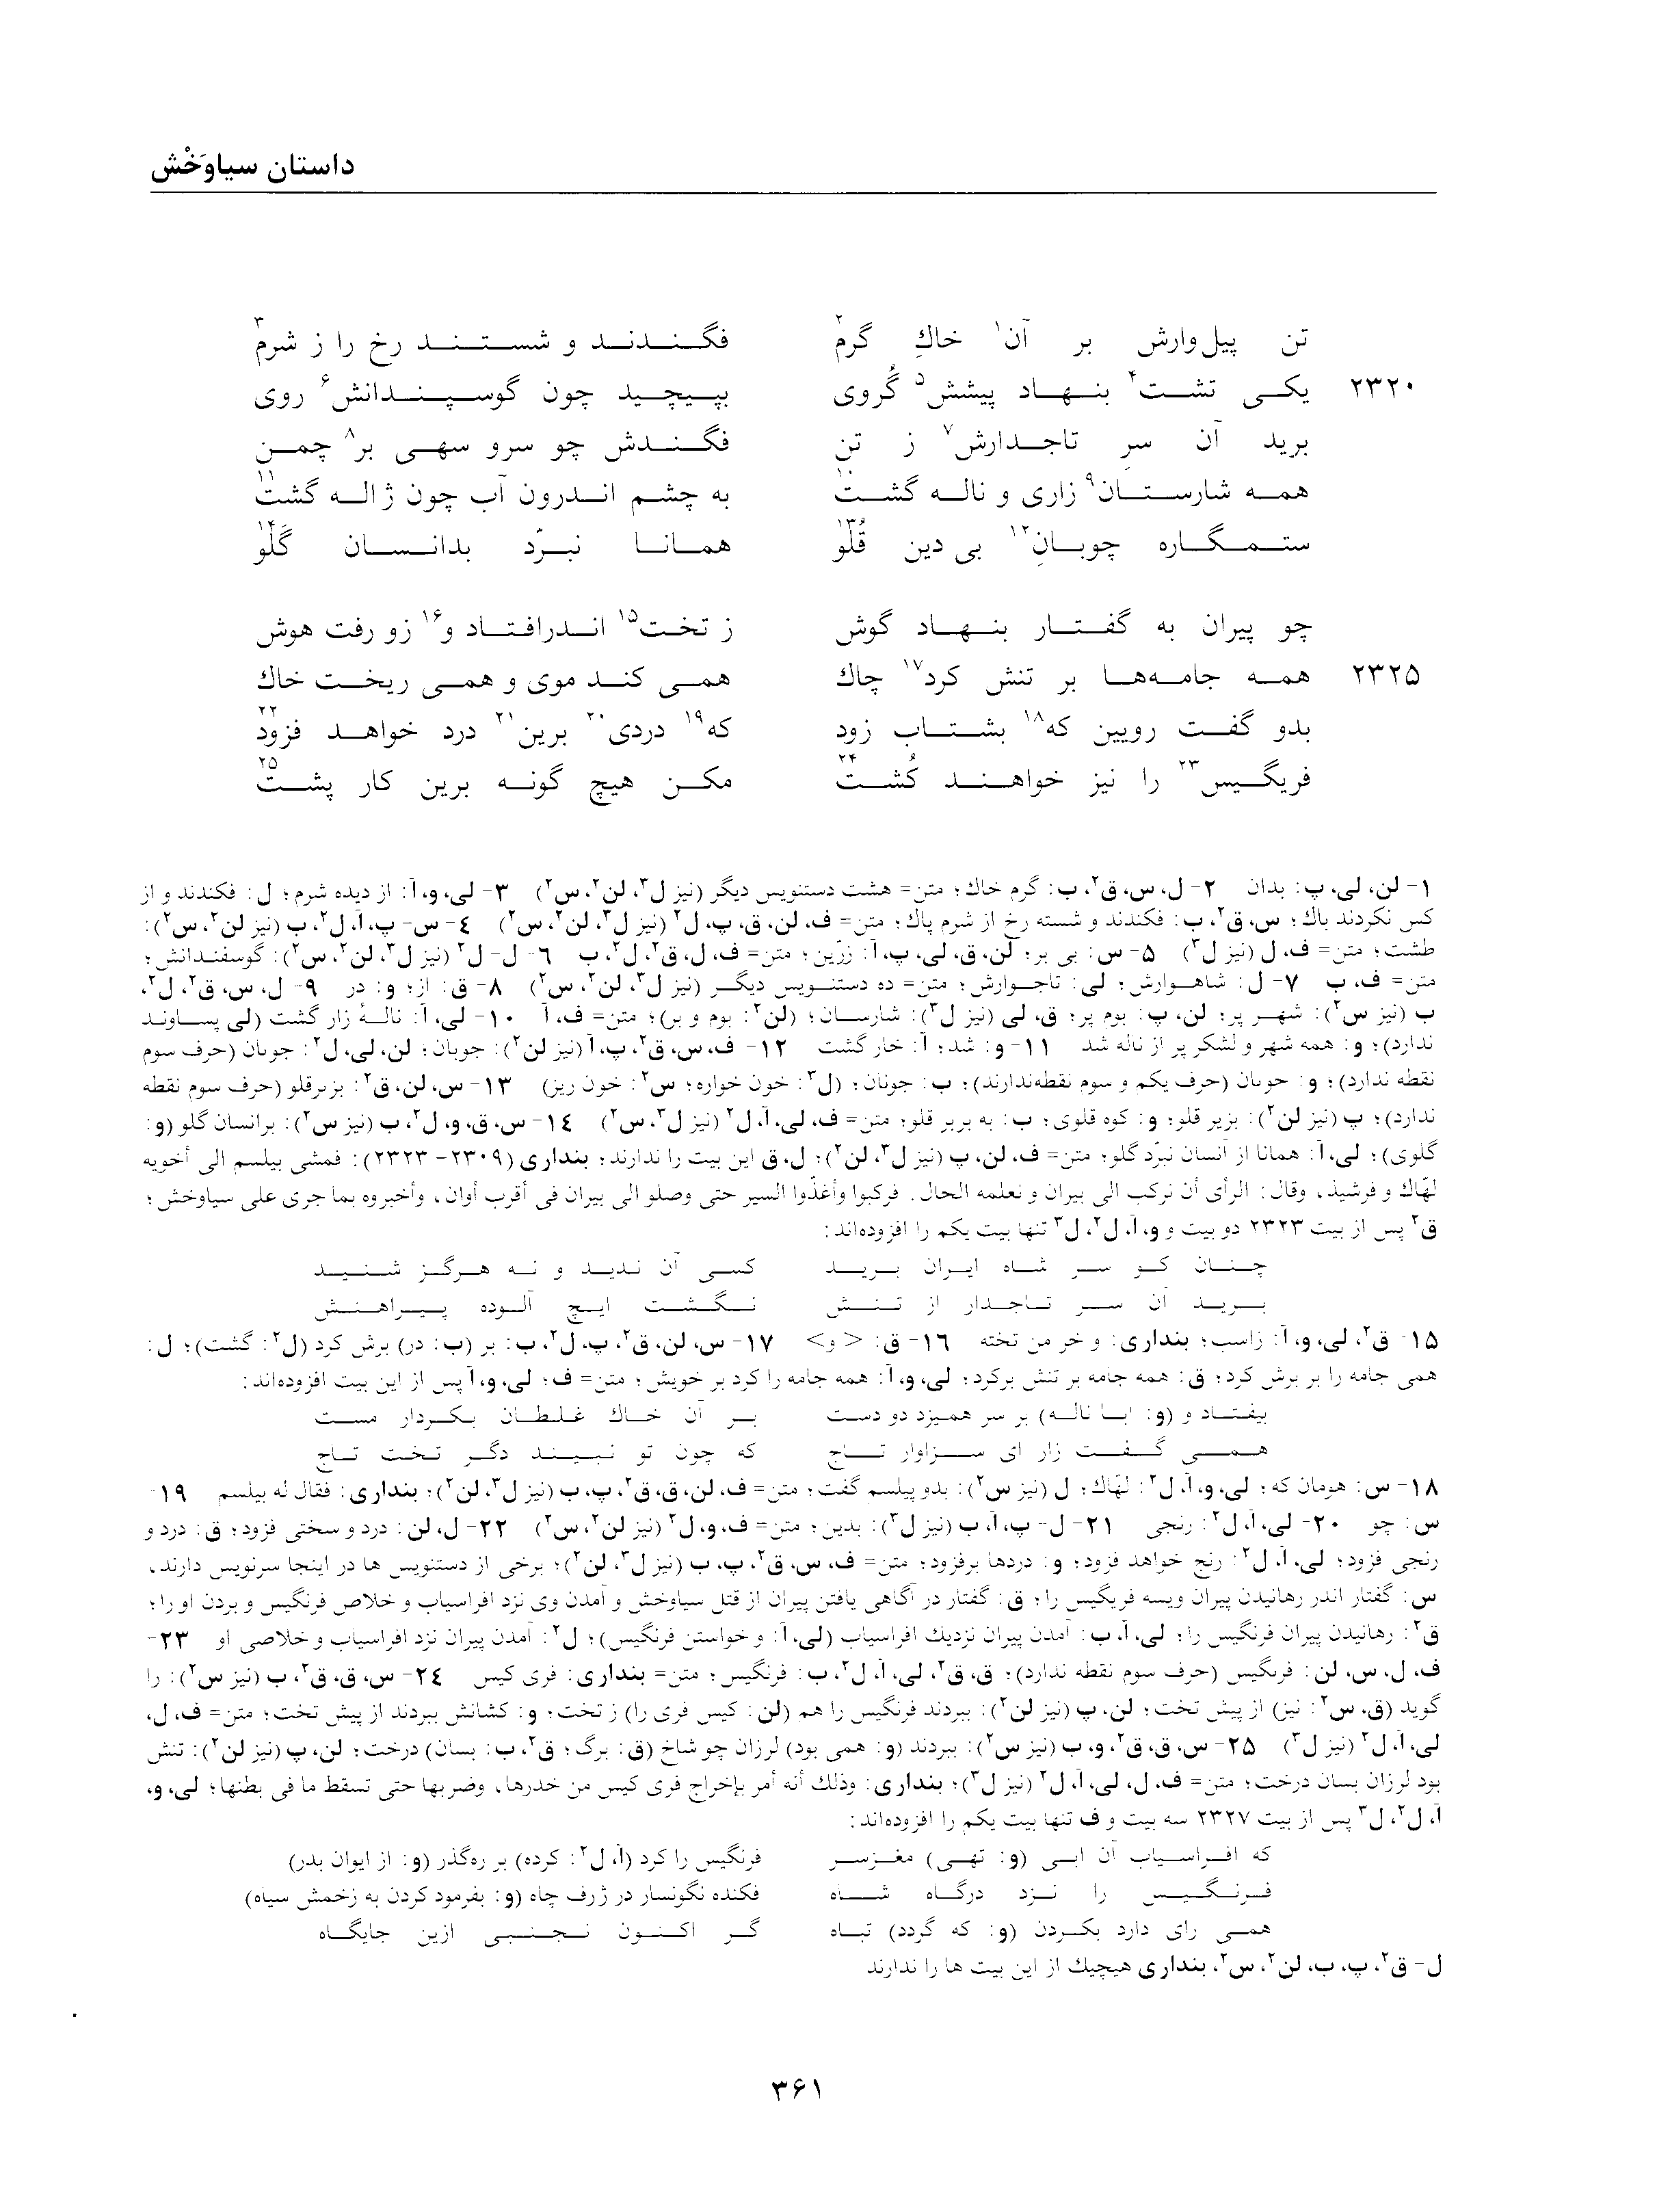 داستان سیاوَخْش
تن پیل‌وارش بر آن۱ خاكِ گرم۲ فگندند و شستند رخ را ز شرم۳
۲۳۲۰ یکی تشت۴ بنهاد پیشش۵ گُروی بپیچید چون گوسپندانش۶ روی
برید آن سرِ تاجدارش۷ ز تن فگندش چو سرو سهی بر۸ چمن
همه شارستان۹ زاری و ناله گشت۱۰ به چشم اندرون آب چون ژاله گشت۱۱
ستمگاره چوبانِ۱۲ بی دین قُلُو۱۳ همانا نبرّد بدانسان گَلُو۱۴
چو پیران به گفتار بنهاد گوش ز تخت۱۵ اندرافتاد و۱۶ زو رفت هوش
۲۳۲۵ همه جامه‌ها بر تنش کرد۱۷ چاك همی کند موی و همی ریخت خاك
بدو گفت رویین که۱۸ بشتاب زود که۱۹ دردی۲۰ برین۲۱ درد خواهد فزود۲۲
فریگیس۲۳ را نیز خواهند کُشت۲۴ مکن هیچ گونه برین کار پشت۲۵
۱- لن، لی، پ: بدان ۲- ل، س، ق۲، ب: گرم خاك؛ متن= هشت دستنویس دیگر (نیز ل۳، لن۲، س۲) ۳- لی، و، آ: از دیده شرم؛ ل: فکندند و از
کس نکردند باك؛ س، ق۲، ب: فکندند و شسته رخ از شرم پاك؛ متن= ف، لن، ق، پ، ل۲ (نیز ل۳، لن۲، س۲) ۴- س- پ، آ، ل۲، ب (نیز لن۲، س۲):
طشت؛ متن= ف، ل (نیز ل۳) ۵- س: بی بر؛ لن، ق، لی، پ، آ: زرّین؛ متن= ف، ل، ق۲، ل۲، ب ۶- ل- ل۲ (نیز ل۳، لن۲، س۲): گوسفندانش؛
متن= ف، ب ۷- ل: شاهوارش؛ لی: تاجوارش؛ متن= ده دستنویس دیگر (نیز ل۳، لن۲، س۲) ۸- ق: از؛ و: در ۹- ل، س، ق۲، ل۲،
ب (نیز س۲): شهر پر؛ لن، پ: بوم پر؛ ق، لی (نیز ل۳): شارسان؛ (لن۲: بوم و بر)؛ متن= ف، آ ۱۰- لی، آ: نالهٔ زار گشت (لی پساوند
ندارد)؛ و: همه شهر و لشکر پر از ناله شد ۱۱- و: شد؛ آ: خار گشت ۱۲- ف، س، ق۲، پ، آ (نیز لن۲): جوبان؛ لن، لی، ل۲: جوىان (حرف سوم
نقطه ندارد)؛ و: حوىان (حرف یکم و سوم نقطه‌ندارند)؛ ب: جونان؛ (ل۳: خون خواره؛ س۲: خون ریز) ۱۳- س، لن، ق۲: بزىرقلو (حرف سوم نقطه
ندارد)؛ پ (نیز لن۲): بزیر قلو؛ و: کوه قلوی؛ ب: به بربر قلو؛ متن= ف، لی، آ، ل۲ (نیز ل۳، س۲) ۱۴- س، ق، و، ل۲، ب (نیز س۲): برانسان گلو (و:
گلوی)؛ لی، آ: همانا از آنسان نبرّد گلو؛ متن= ف، لن، پ (نیز ل۳، لن۲)؛ ل، ق این بیت را ندارند؛ بنداری (۲۳۰۹- ۲۳۲۳): فمشى بیلسم الى أخویه
لهّاك و فرشیذ، وقال: الرأى أن نركب الى بیران و نعلمه الحال. فركبوا وأغذّوا السیر حتى وصلو الى بیران فى أقرب أوان، وأخبروه بما جرى على سیاوخش؛
ق۲ پس از بیت ۲۳۲۳ دو بیت و و، آ، ل۲، ل۳ تنها بیت یکم را افزوده‌اند:
چنان کو سر شاه ایران برید کسی آن ندید و نه هرگز شنید
برید آن سر تاجدار از تنش نگشت ایچ آلوده پیراهنش
۱۵- ق۲، لی، و، آ: زاسب؛ بنداری: و خر من تخته ۱۶- ق: <و> ۱۷- س، لن، ق۲، پ، ل۲، ب: بر (ب: در) برش کرد (ل۲: گشت)؛ ل:
همی جامه را بر برش کرد؛ ق: همه جامه بر تنش برکرد؛ لی، و، آ: همه جامه را کرد بر خویش؛ متن= ف؛ لی، و، آ پس از این بیت افزوده‌اند:
بیفتاد و (و: ابا ناله) بر سر همیزد دو دست بر آن خاك غلطان بکردار مست
همی گفت زار ای سزاوار تاج که چون تو نبیند دگر تخت تاج
۱۸- س: هومان که؛ لی، و، آ، ل۲: لهّاك؛ ل (نیز س۲): بدو پیلسم گفت؛ متن= ف، لن، ق، ق۲، پ، ب (نیز ل۳، لن۲)؛ بنداری: فقال له بیلسم ۱۹-
س: چو ۲۰- لی، آ، ل۲: رنجی ۲۱- ل- پ، آ، ب (نیز ل۳): بدین؛ متن= ف، و، ل۲ (نیز لن۲، س۲) ۲۲- ل، لن: درد و سختی فزود؛ ق: درد و
رنجی فزود؛ لی، آ، ل۲: رنج خواهد فزود؛ و: دردها برفزود؛ متن= ف، س، ق۲، پ، ب (نیز ل۳، لن۲)؛ برخی از دستنویس ها در اینجا سرنویس دارند،
س: گفتار اندر رهانیدن پیران ویسه فریگیس را؛ ق: گفتار در آگاهی یافتن پیران از قتل سیاوخش و آمدن وی نزد افراسیاب و خلاص فرنگیس و بردن او را؛
ق۲: رهانیدن پیران فرنگیس را؛ لی، آ، ب: آمدن پیران نزدیك افراسیاب (لی، آ: و خواستن فرنگیس)؛ ل۲: آمدن پیران نزد افراسیاب و خلاصی او ۲۳-
ف، ل، س، لن: فرىگیس (حرف سوم نقطه ندارد)؛ ق، ق۲، لی، آ، ل۲، ب: فرنگیس؛ متن= بنداری: فری کیس ۲۴- س، ق، ق۲، ب (نیز س۲): را
گوید (ق، س۲: نیز) از پیش تخت؛ لن، پ (نیز لن۲): ببردند فرنگیس را هم (لن: کیس فری را) ز تخت؛ و: کشانش ببردند از پیش تخت؛ متن= ف، ل،
لی، آ، ل۲ (نیز ل۳) ۲۵- س، ق، ق۲، و، ب (نیز س۲): ببردند (و: همی بود) لرزان چو شاخ (ق: برگ؛ ق۲، ب: بسان) درخت؛ لن، پ (نیز لن۲): تنش
بود لرزان بسان درخت؛ متن= ف، ل، لی، آ، ل۲ (نیز ل۳)؛ بنداری: وذلك أنه أمر بإخراج فرى كیس من خدرها، وضربها حتى تسقط ما فى بطنها؛ لی، و،
آ، ل۲، ل۳ پس از بیت ۲۳۲۷ سه بیت و ف تنها بیت یکم را افزوده‌اند:
که افراسیاب آن ابی (و: تهی) مغزسر فرنگیس را کرد (آ، ل۲: کرده) بر ره‌گذر (و: از ایوان بدر)
فرنگیس را نزد درگاه شاه فکنده نگونسار در ژرف چاه (و: بفرمود کردن به زخمش سیاه)
همی رای دارد بکردن (و: که گردد) تباه گر اکنون نجنبی ازین جایگاه
ل- ق۲، پ، ب، لن۲، س۲، بنداری هیچیك از این بیت ها را ندارند
۳۶۱